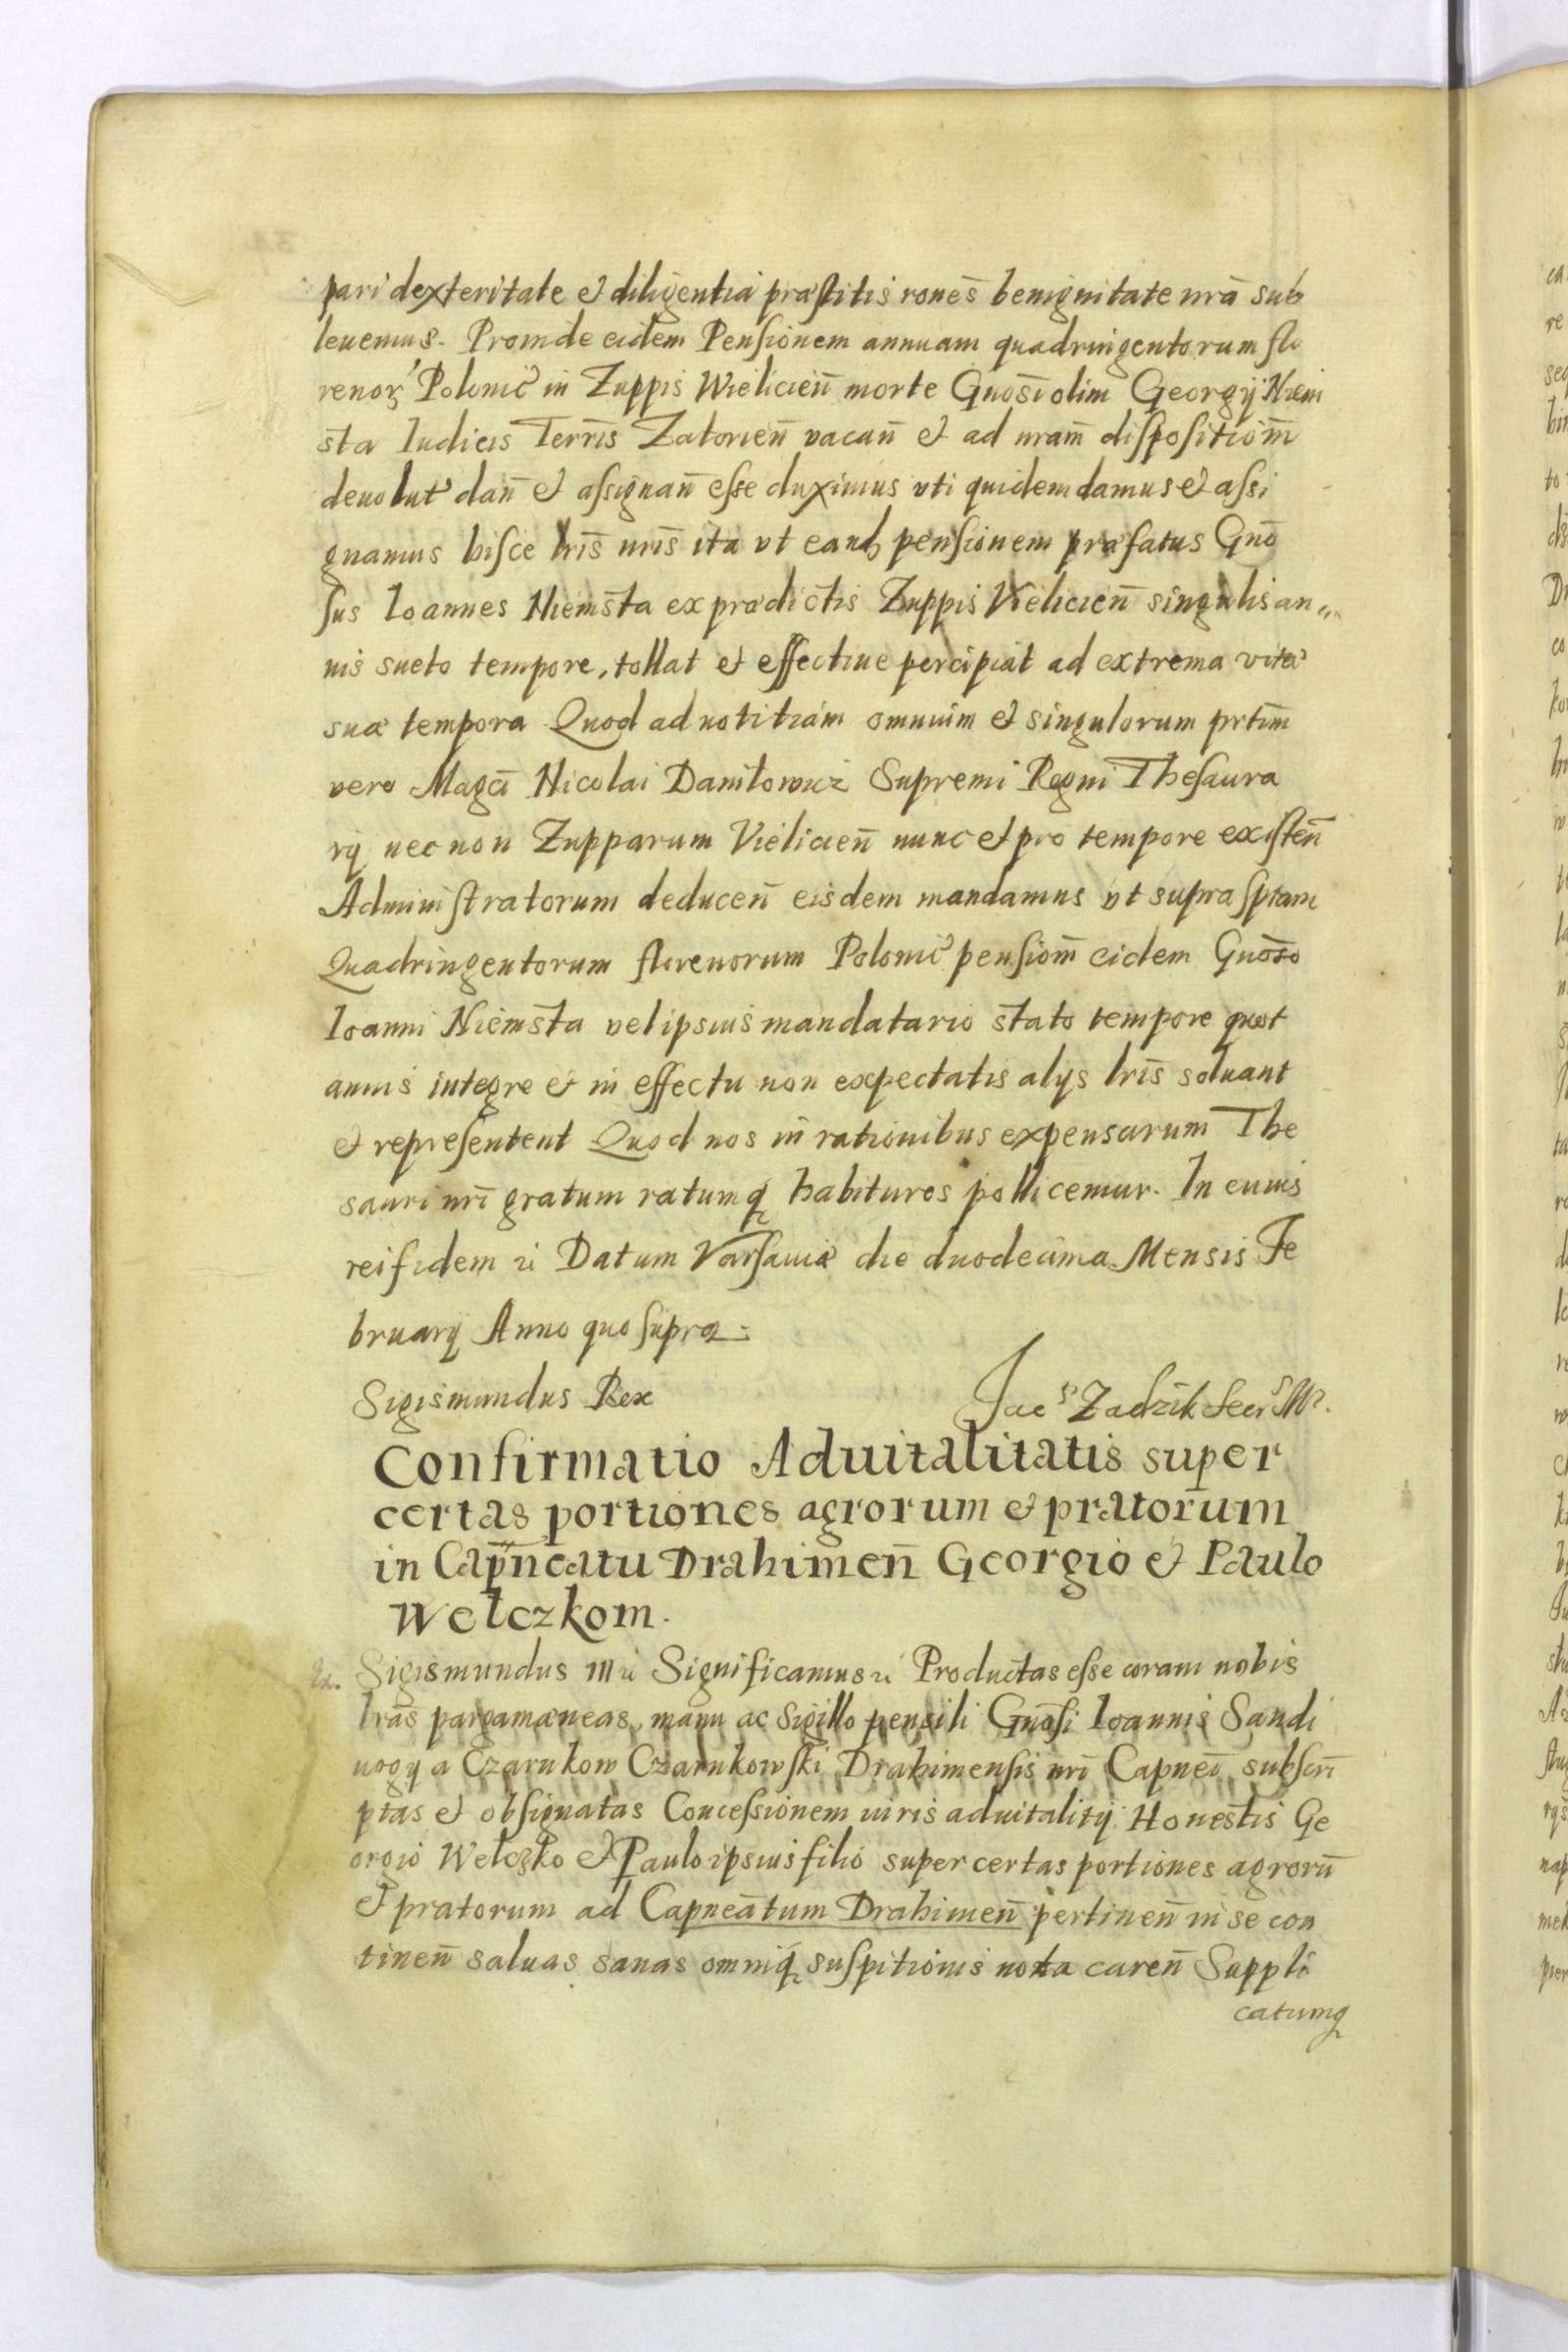 pari dexteritate et diligentia præstitis rones benignitate nrã sub
leuemus. Proinde eidem Pensionem annuam quadringentorum flo
renorꝝ Polonic in Zuppis Wieliczien̄ morte Gnosi olim Georgij Niem
sta Iudicis Terrīs Zatorien̄ vacan̄ et ad nram̄ dispositiom̄
deuolut dan̄ et assignan̄ esse duximus vti quidem damus et assi
gnamus hisce lrīs nrīs ita vt eand pensionem præfatus Gnō
sus Ioannes Niemsta ex prædictis Zuppis Vielicien̄ singulis an„
nis sueto tempore, tollat et effectiue percipiat ad extrema vitæ
suæ tempora Quod ad notitiam omnium et singulorum prtim̄
vero Magcī Nicolai Daniłowicz Supremi Regni Thesaura
rij nec non Zupparum Vielicien̄ nunc et pro tempore existen̄
Administratorum deducen̄ eisdem mandamus vt supra sptam
Quadringentorum florenorum Polonic pensiom̄ eidem Gnoso
Ioanni Niemsta vel ipsius mandatario stato tempore quot
annis integre et in effectu non expectatis alijs lrīs soluant
et representent Quod nos in rationibus expensarum The
sauri nrī gratum ratumq̨ habituros pollicemur. In cuius
rei fidem &c Datum Varsauiæ die duodecima Mensis Fe
bruarij Anno quo supra.
Sigismundus Rex
Jac Zadzik Secr
Confirmatio Aduitalitatis super
certas portiones agrorum et pratorum
in Capneatu Drahimen̄ Georgio et Paulo
Welczkom.
Sigismundus III &c Significamus &c Productas esse coram nobis
lrās pargamæneas, manu ac Sigillo pensili Gnōsi Ioannis Sandi
uogij a Czarnkow Czarnkowski Drahimensis nrī Capneī subscrī
ptas et obsignatas Concessionem iuris aduitalitij Honestis Ge
orgio Welczko et Paulo ipsius filio super certas portiones agrorū
et pratorum ad Capneātum Drahimen̄ pertinen̄ in se con
tinen̄ saluas sanas omniq̨ suspitionis nota caren̄ Suppli
catumq̨